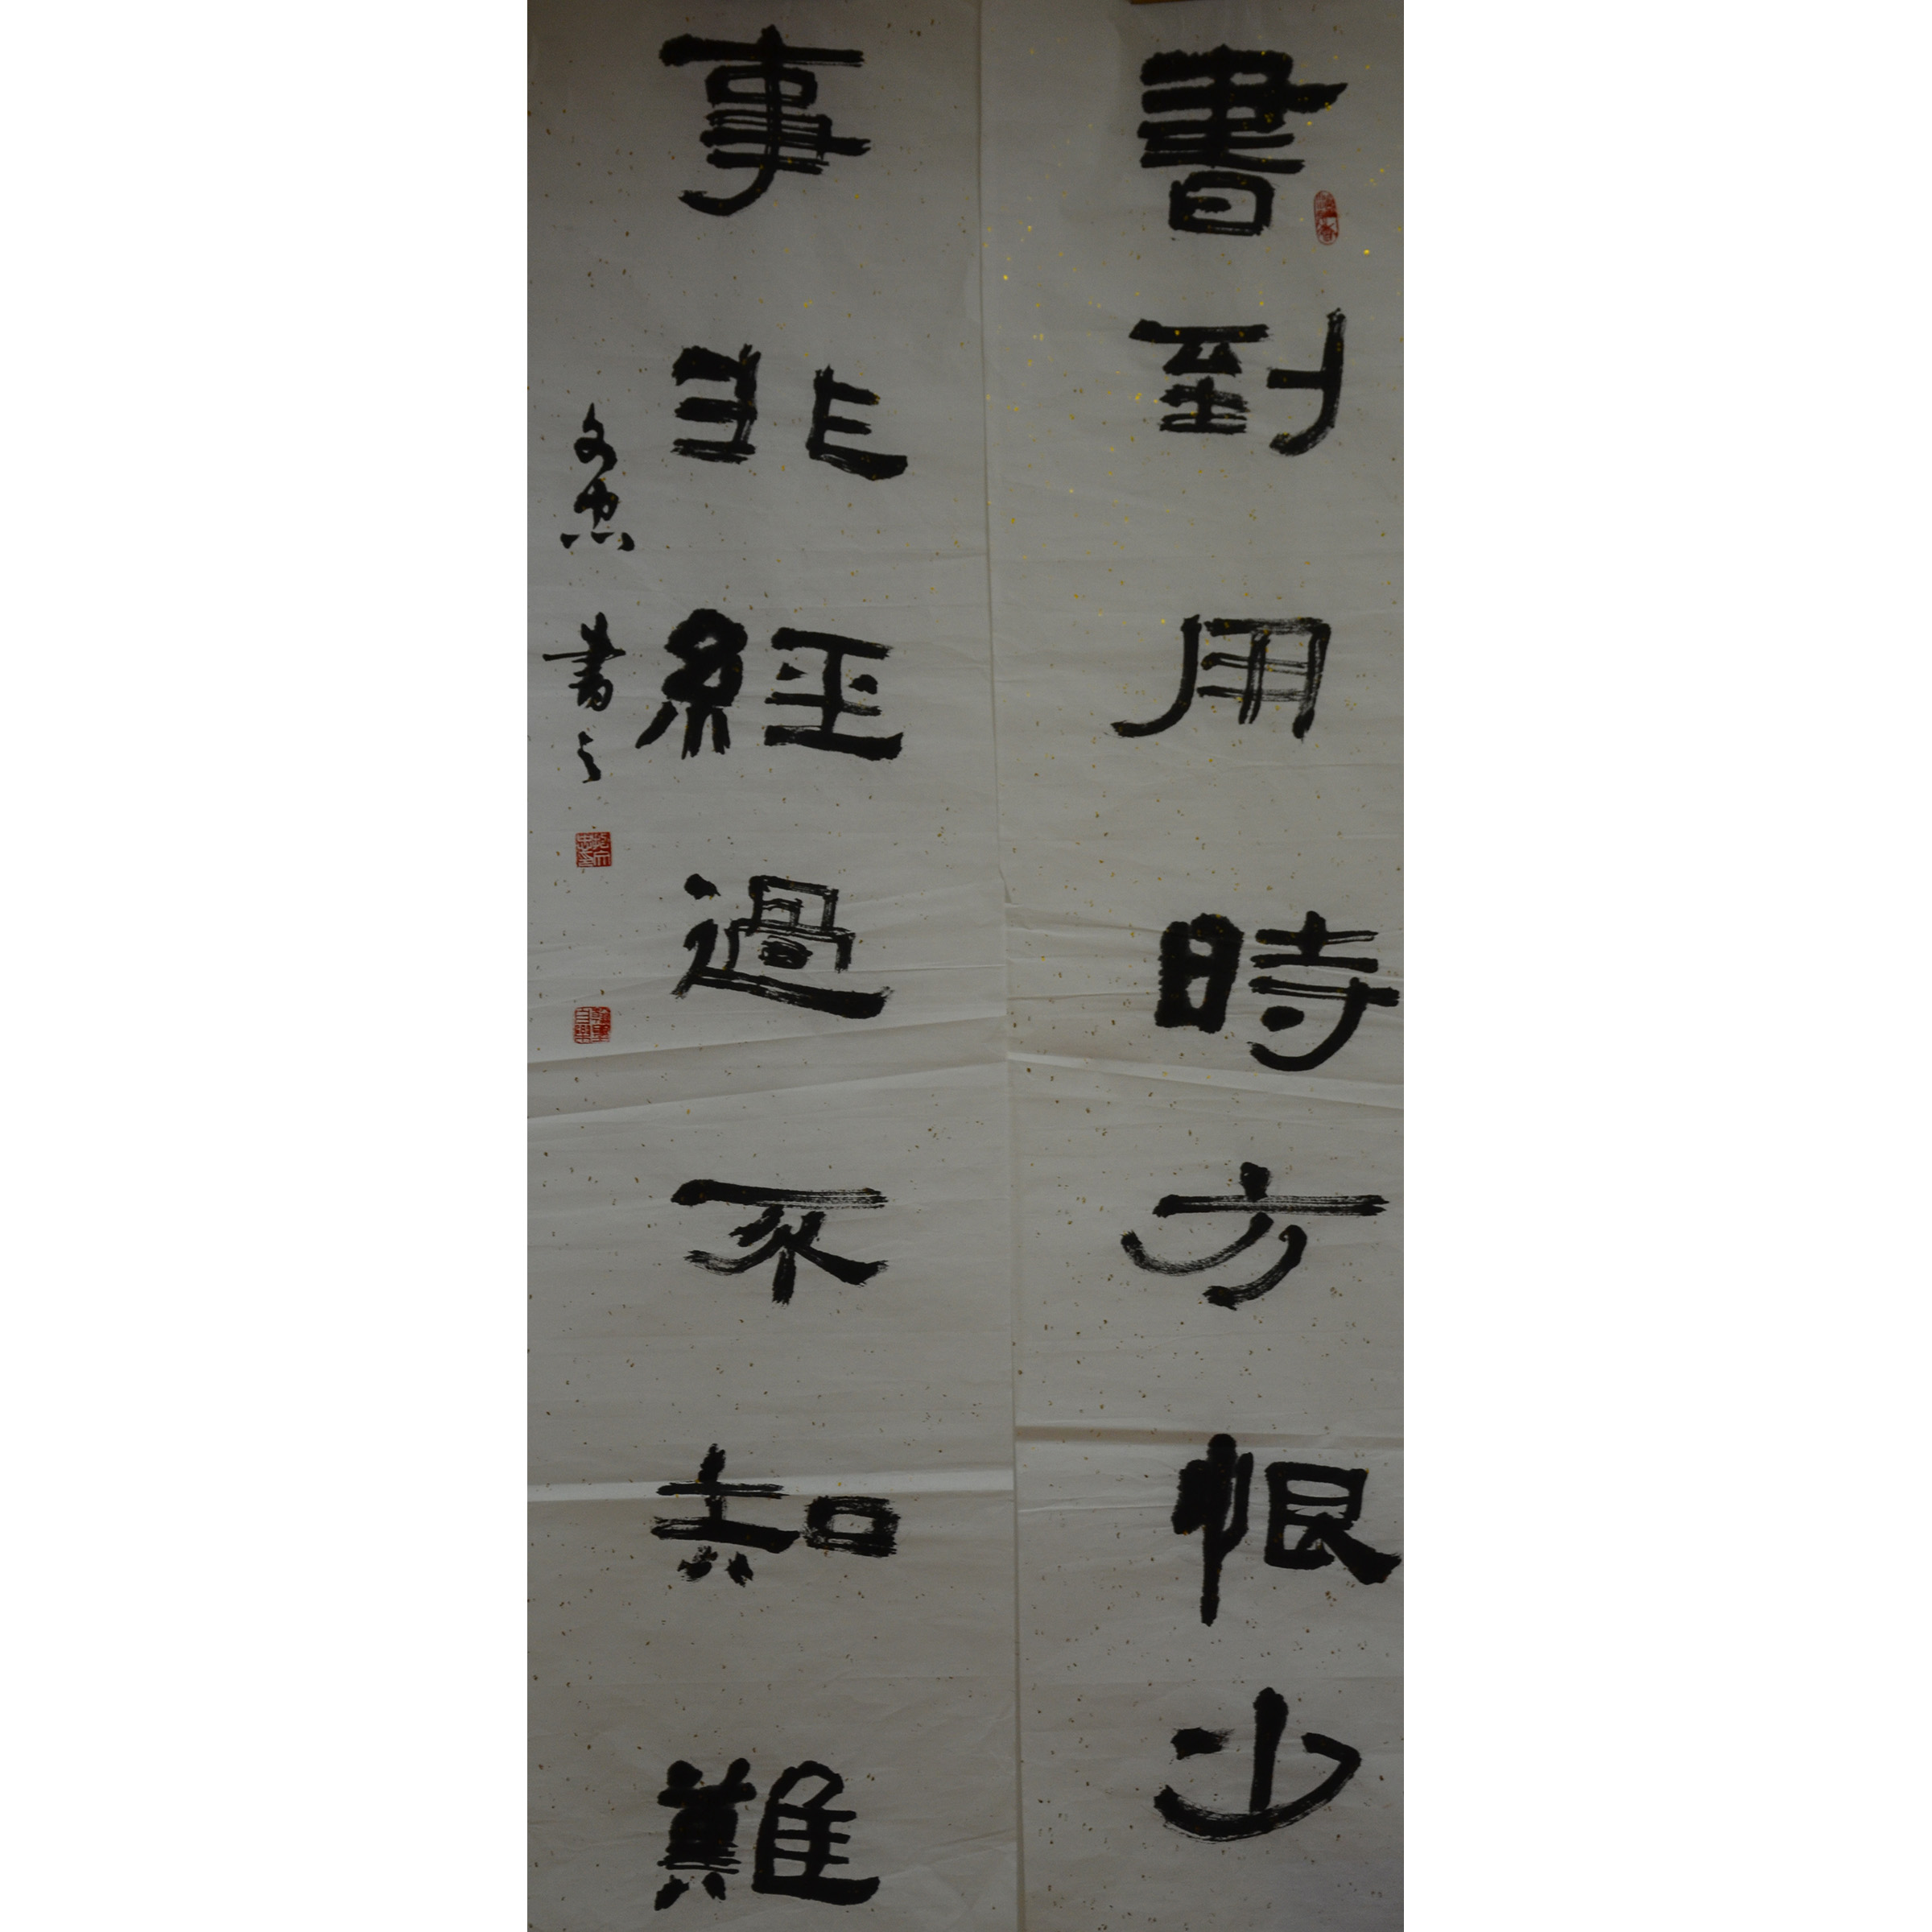 書到用時方恨少
事非經過不知難
文忠書之